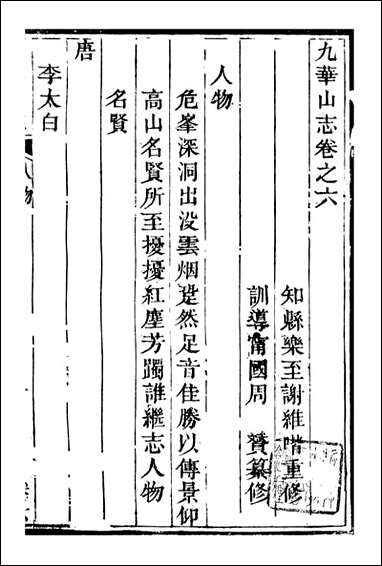 九華山志卷之六
知縣樂至謝維喈重修
訓導甯國周 贇纂修
人物
危峯深洞出没雲烟跫然足音佳勝以傳景仰
高山名賢所至擾擾紅塵芳躅誰繼志人物
名賢
唐
李太白
人物